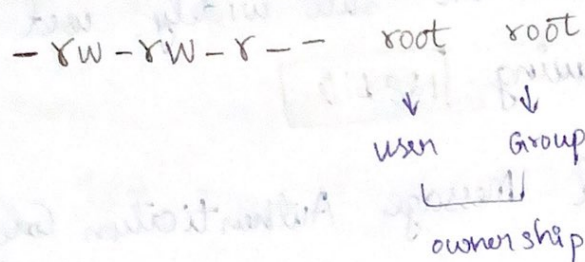 -rw-rw-r-- root root
user Group
ownership